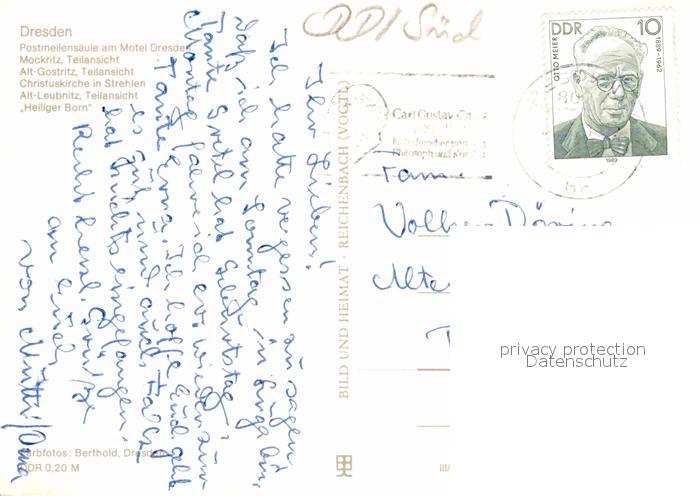 Dresden
Postmeilensäule am Motel Dresden
Mockritz, Teilansicht
Alt-Gostritz, Teilansicht
Christuskirche in Strehlen
Alt-Leubnitz, Teilansicht
„Heiliger Born"
Ihr Lieben!
Ich hatte vergessen zu sagen,
daß ich am Sonntag in bin,
Tante Gretel hat Geburtstag.
Montag fahre ich wieder zur
Tante Erna. Ich hoffe Euch geht
es gut und auch
hat nichts eingefangen.
Recht herzl. Grüße
an Euch
von Mutti/Oma
Farbfotos: Berthold, Dresden
DDR 0,20 M
BILD UND HEIMAT · REICHENBACH (VOGTL)
III/
Süd
Carl Gustav
Naturforscher
Philosoph und
DDR 10
OTTO MEIER
1889-1962
1989
Fam
Volker
Alte
privacy protection
Datenschutz